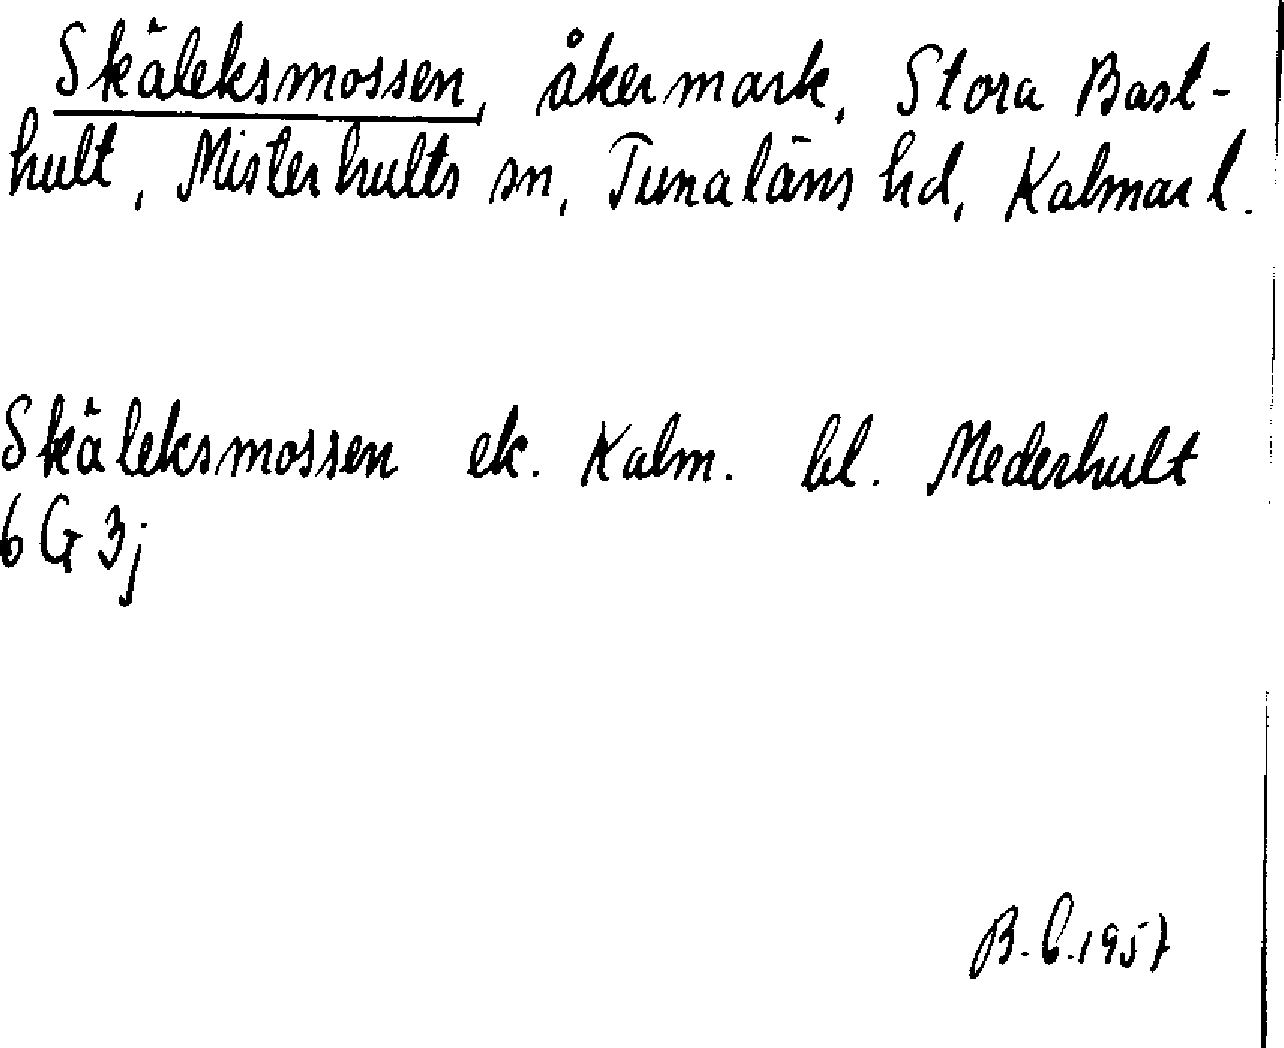 Skäleksmossen, åkermark, Stora Bast-
hult, Misterhults sn, Tunaläns hd, Kalmar l.
Skäleksmossen ek. Kalm. bl. Mederhult
6 G 3j
B.C. 1957